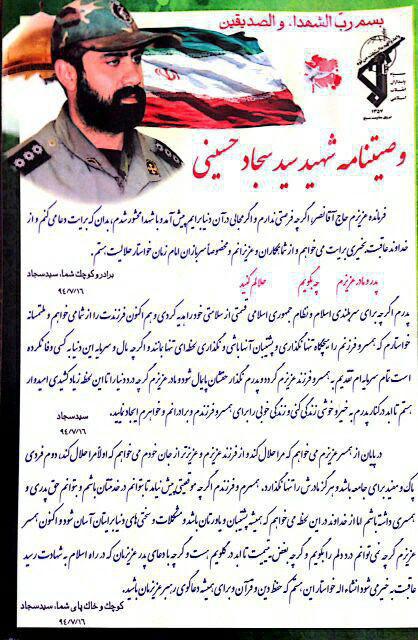 بسم رب الشهداء والصدیقین
سپاه
پاسداران
انقلاب
اسلامی
۱۳۵۷
وصیتنامه شهید سید سجاد حسینی
فرمانده عزیزم حاج آقا نصر، اگرچه فرصتی ندارم و اگر مجالی در آن دنیا برایم پیش آمد و با شهدا محشور شدم، بدان که برایت دعا می کنم و از
خداوند عاقبت بخیری برایت می خواهم و از شما همکاران و عزیزانم و مخصوصا سربازان امام زمان خواستار حلالیت هستم.
برادر و کوچک شما، سیدسجاد
۹۴/۷/۱۶
پدر و مادر عزیزم چه بگویم حلالم کنید
پدرم اگرچه برای سربلندی اسلام و نظام جمهوری اسلامی قسمتی از سلامتی خود را هدیه کردی و هم اکنون فرزندت را از شما می خواهم و ملتمسانه
خواستارم که همسر و فرزندم را هیچگاه تنها نگذاری و پشتیبان آنها باشی و نگذاری لحظه ای تنها بمانند و اگرچه مال و سرمایه این دنیا به کسی وفا نکرده
است تمام سرمایه ام تقدیم به همسر و فرزند عزیزم گردد و پدرم نگذار حقشان پایمال شود و مادر عزیزم گرچه در دنیا تا این لحظه زیاد کشیدی امیدوار
هستم تا ابد در کنار پدرم به خیر و خوشی زندگی کنی و زندگی خوبی را برای همسر و فرزندم و برادرانم و خواهرم ایجاد نمایید.
سیدسجاد
۹۴/۷/۱۶
در پایان از همسر عزیزم می خواهم که مرا حلال کند و از فرزند عزیزم و عزیزتر از جان خودم می خواهم که اولا مرا حلال کند، دوم فردی
پاک و مفید برای جامعه باشد و هرگز مادرش را تنها نگذارد، همسرم و فرزندم اگرچه موقعیتی پیش نیامد تا بتوانم در خدمتتان باشم و بتوانم حق پدری و
همسری داشته باشم اما از خداوند در این لحظه می خواهم که همیشه پشتیبان و یاورتان باشد و مشکلات و سختی های دنیا برایتان آسان شود و اکنون همسر
عزیزم گرچه نمی توانم درد دلم را بگویم و گرچه بغض هست تا ابد در گلویم هست و گرچه با دعای پدر عزیزمان که در راه اسلام به شهادت رسید
عاقبت به خیر می شود انشاءاله خواستار این هستم که حفظ دین و قرآن و برای همیشه دعاگوی رهبر عزیزمان باشید.
کوچک و خاک پای شما، سیدسجاد
۹۴/۷/۱۶